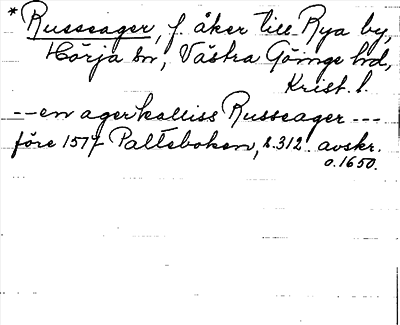 *Russeager, f. åker till Rya by,
Hörja sn, Västra Göinge hd,
Krist. l.
-- en ager kalliss Russeager ---
före 1517 Palteboken, s. 312 avskr.
o. 1650.